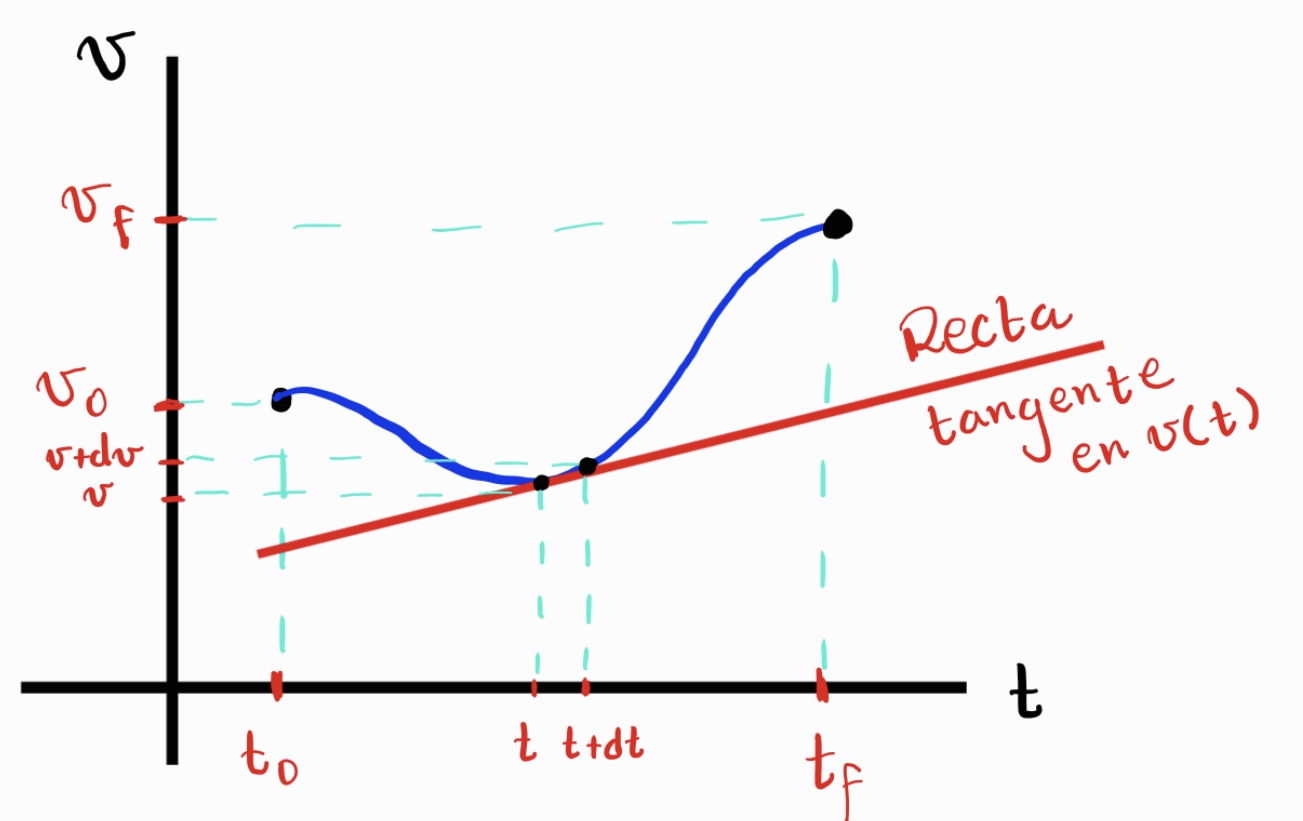 v
v_f
v_0
v+dv
v
Recta
tangente
en v(t)
t
t_0
t
t+dt
t_f